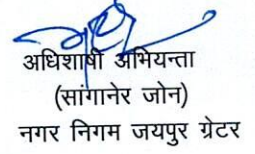 अधिशाषी अभियन्ता
(सांगानेर जोन)
नगर निगम जयपुर ग्रेटर